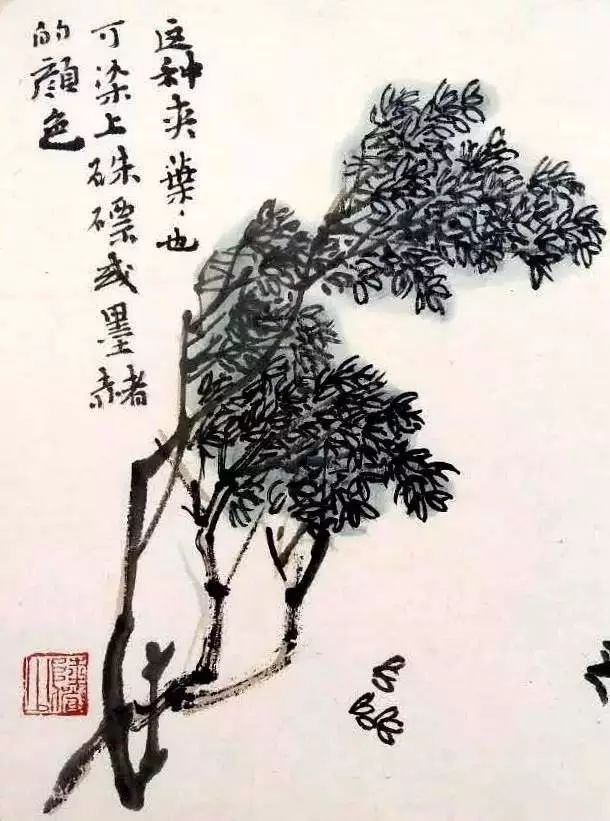 这种夹葉、也
可染上硃磦或墨赭
的顔色